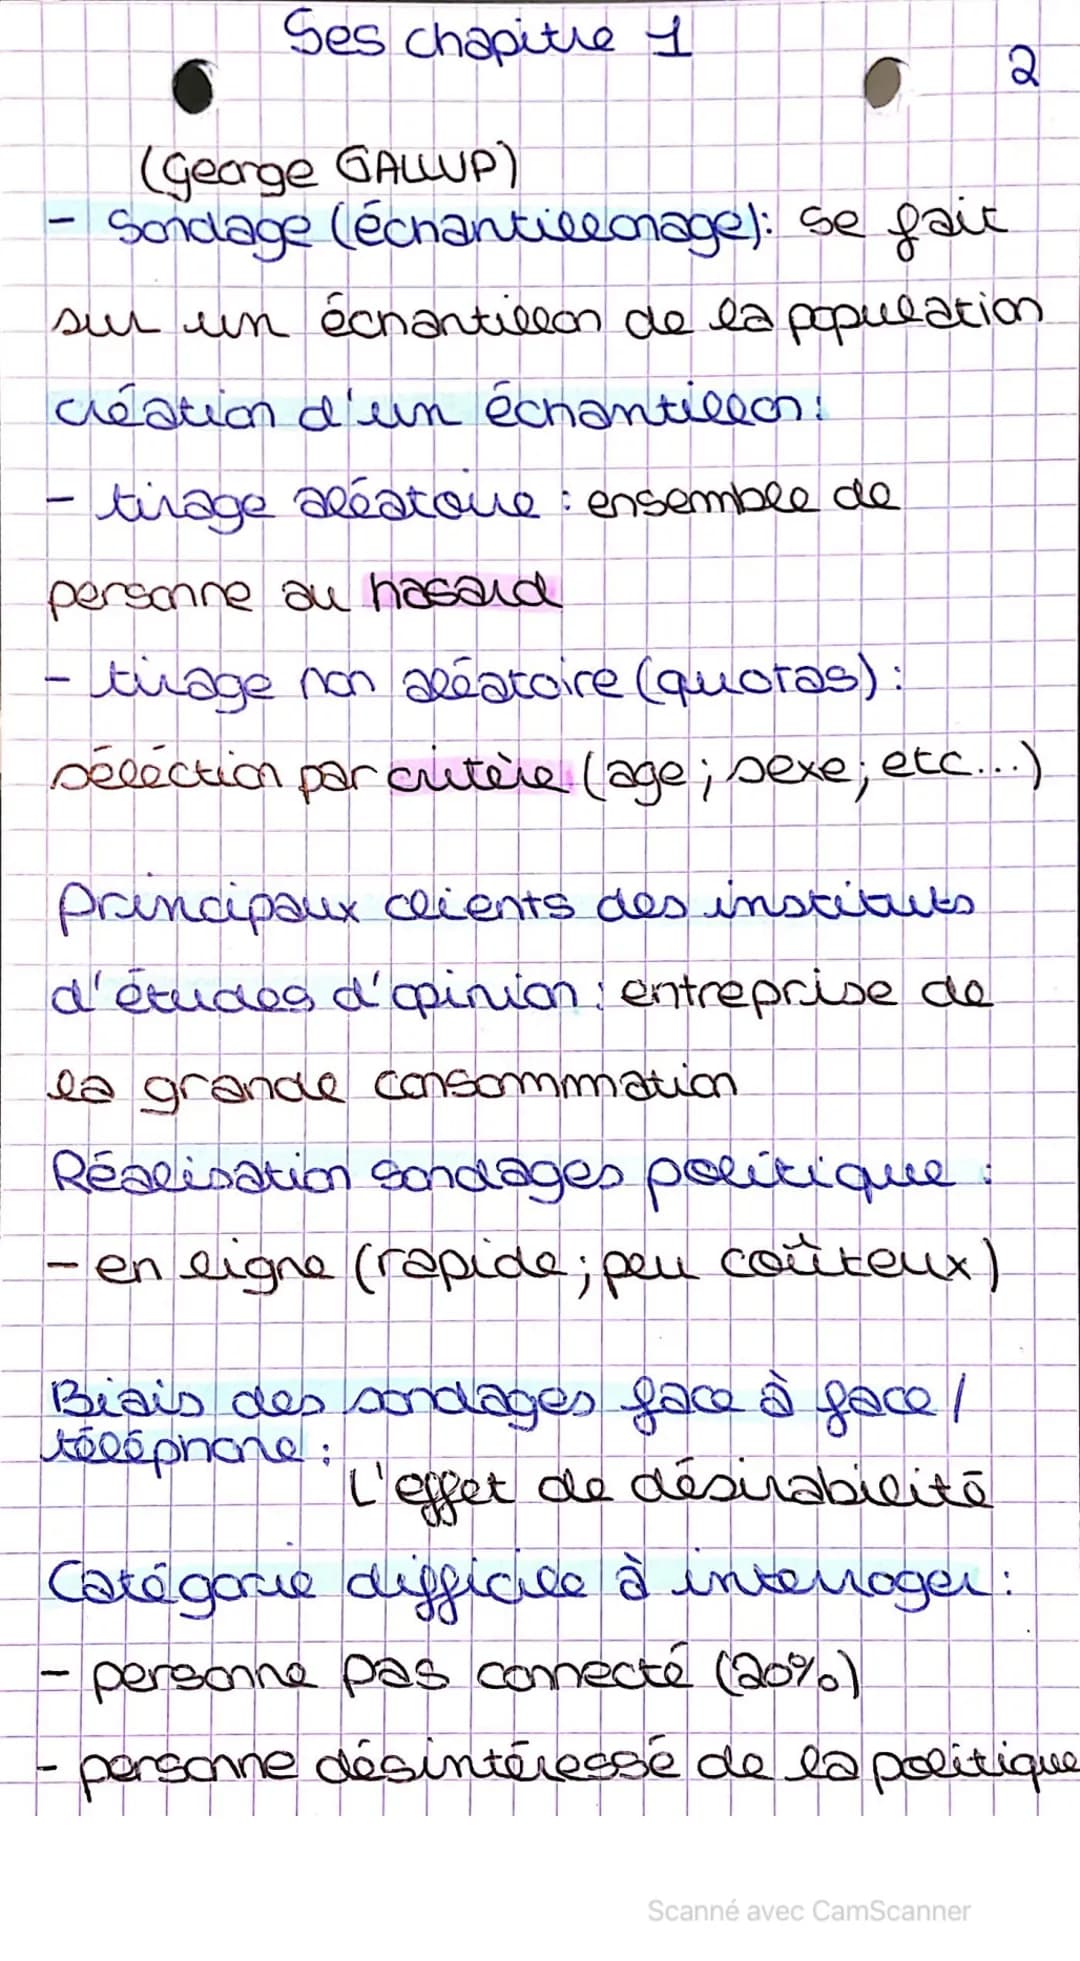 Ses chapitre 1
2
(George GALLUP)
- Sondage (échantillonage): se fait
sur un échantillon de la population
création d'un échantillon:
- tirage aléatoire : ensemble de
personne au hasard
- tirage non aléatoire (quotas) :
séléction par critère (age ; sexe ; etc...)
principaux clients des instituts
d'études d'opinion : entreprise de
la grande consommmation
Réalisation sondages politique :
- en ligne (rapide ; peu coûteux)
Biais des sondages face à face /
téléphone :
L'effet de désirabilité
Catégorie difficile à interroger :
- personne pas connecté (20%)
- personne désintéressé de la politique
Scanné avec CamScanner